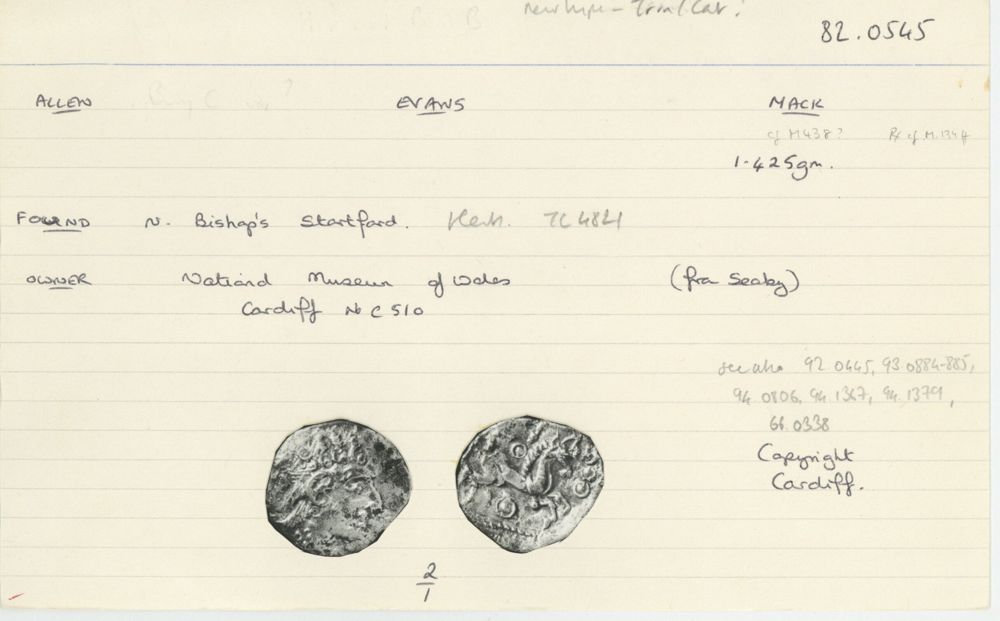 new type - Trin/Cat?
82.0545
ALLEN EVANS MACK
cf M438? Rx cf M.134ff
1.425gm.
FOUND N. Bishop's Startford. Herts. TL 4821
OWNER National Museum of Wales (from Seaby)
Cardiff No C 510
see also 92.0445, 93.0884-885,
94.0806, 94.1367, 94.1379,
66.0338
Copyright
Cardiff.
2
1